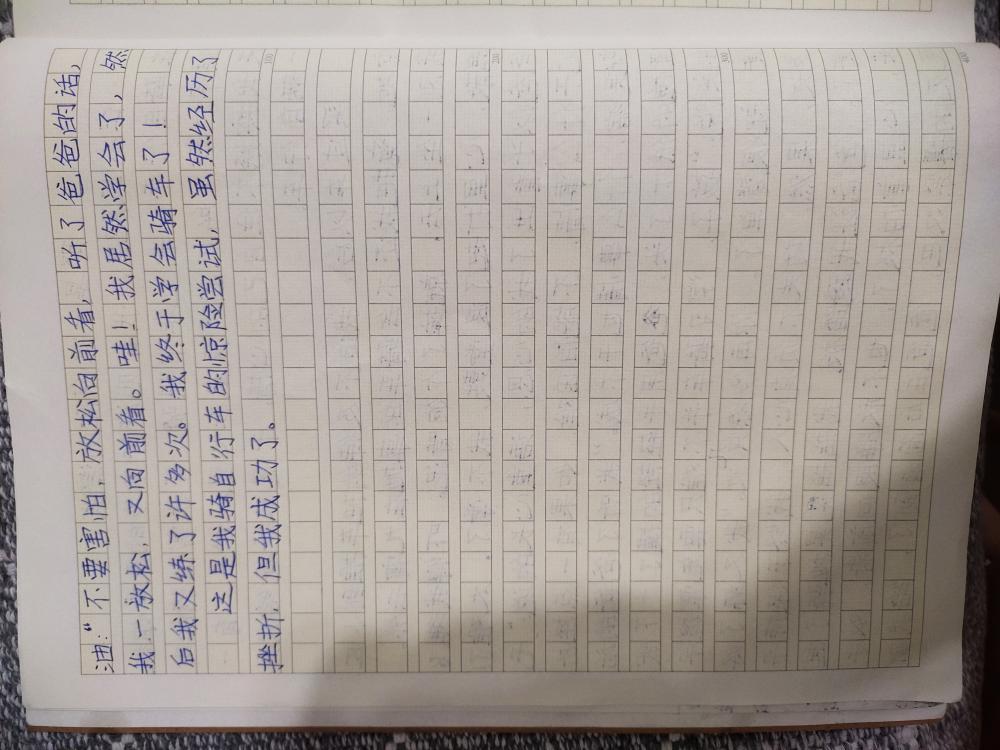 油:“不要害怕，放松向前看，听了爸爸的话，
我一放松，又向前看。哇！我居然学会了，然
后我又练了许多次。我终于学会骑车了！
这是我骑自行车的惊险尝试，虽然经历了
挫折，但我成功了。
100
200
300